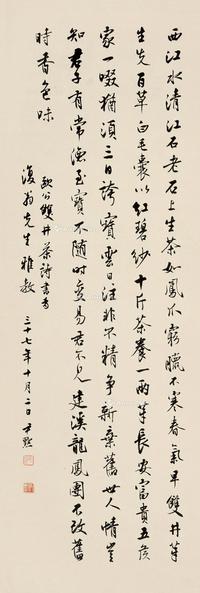 西江水清江石老石上生茶如鳳爪窮臘不寒春氣早雙井芽
生先百草白毛囊以紅碧紗十斤茶養一兩芽長安富貴五侯
家一啜猶須三日誇寶雲日注非不精爭新棄舊世人情豈
知君子有常德至寶不隨時變易君不見建溪龍鳳團不改舊
時香色味
歐公雙井茶詩書奉
復翁先生雅教
三十七年十月二日尹默